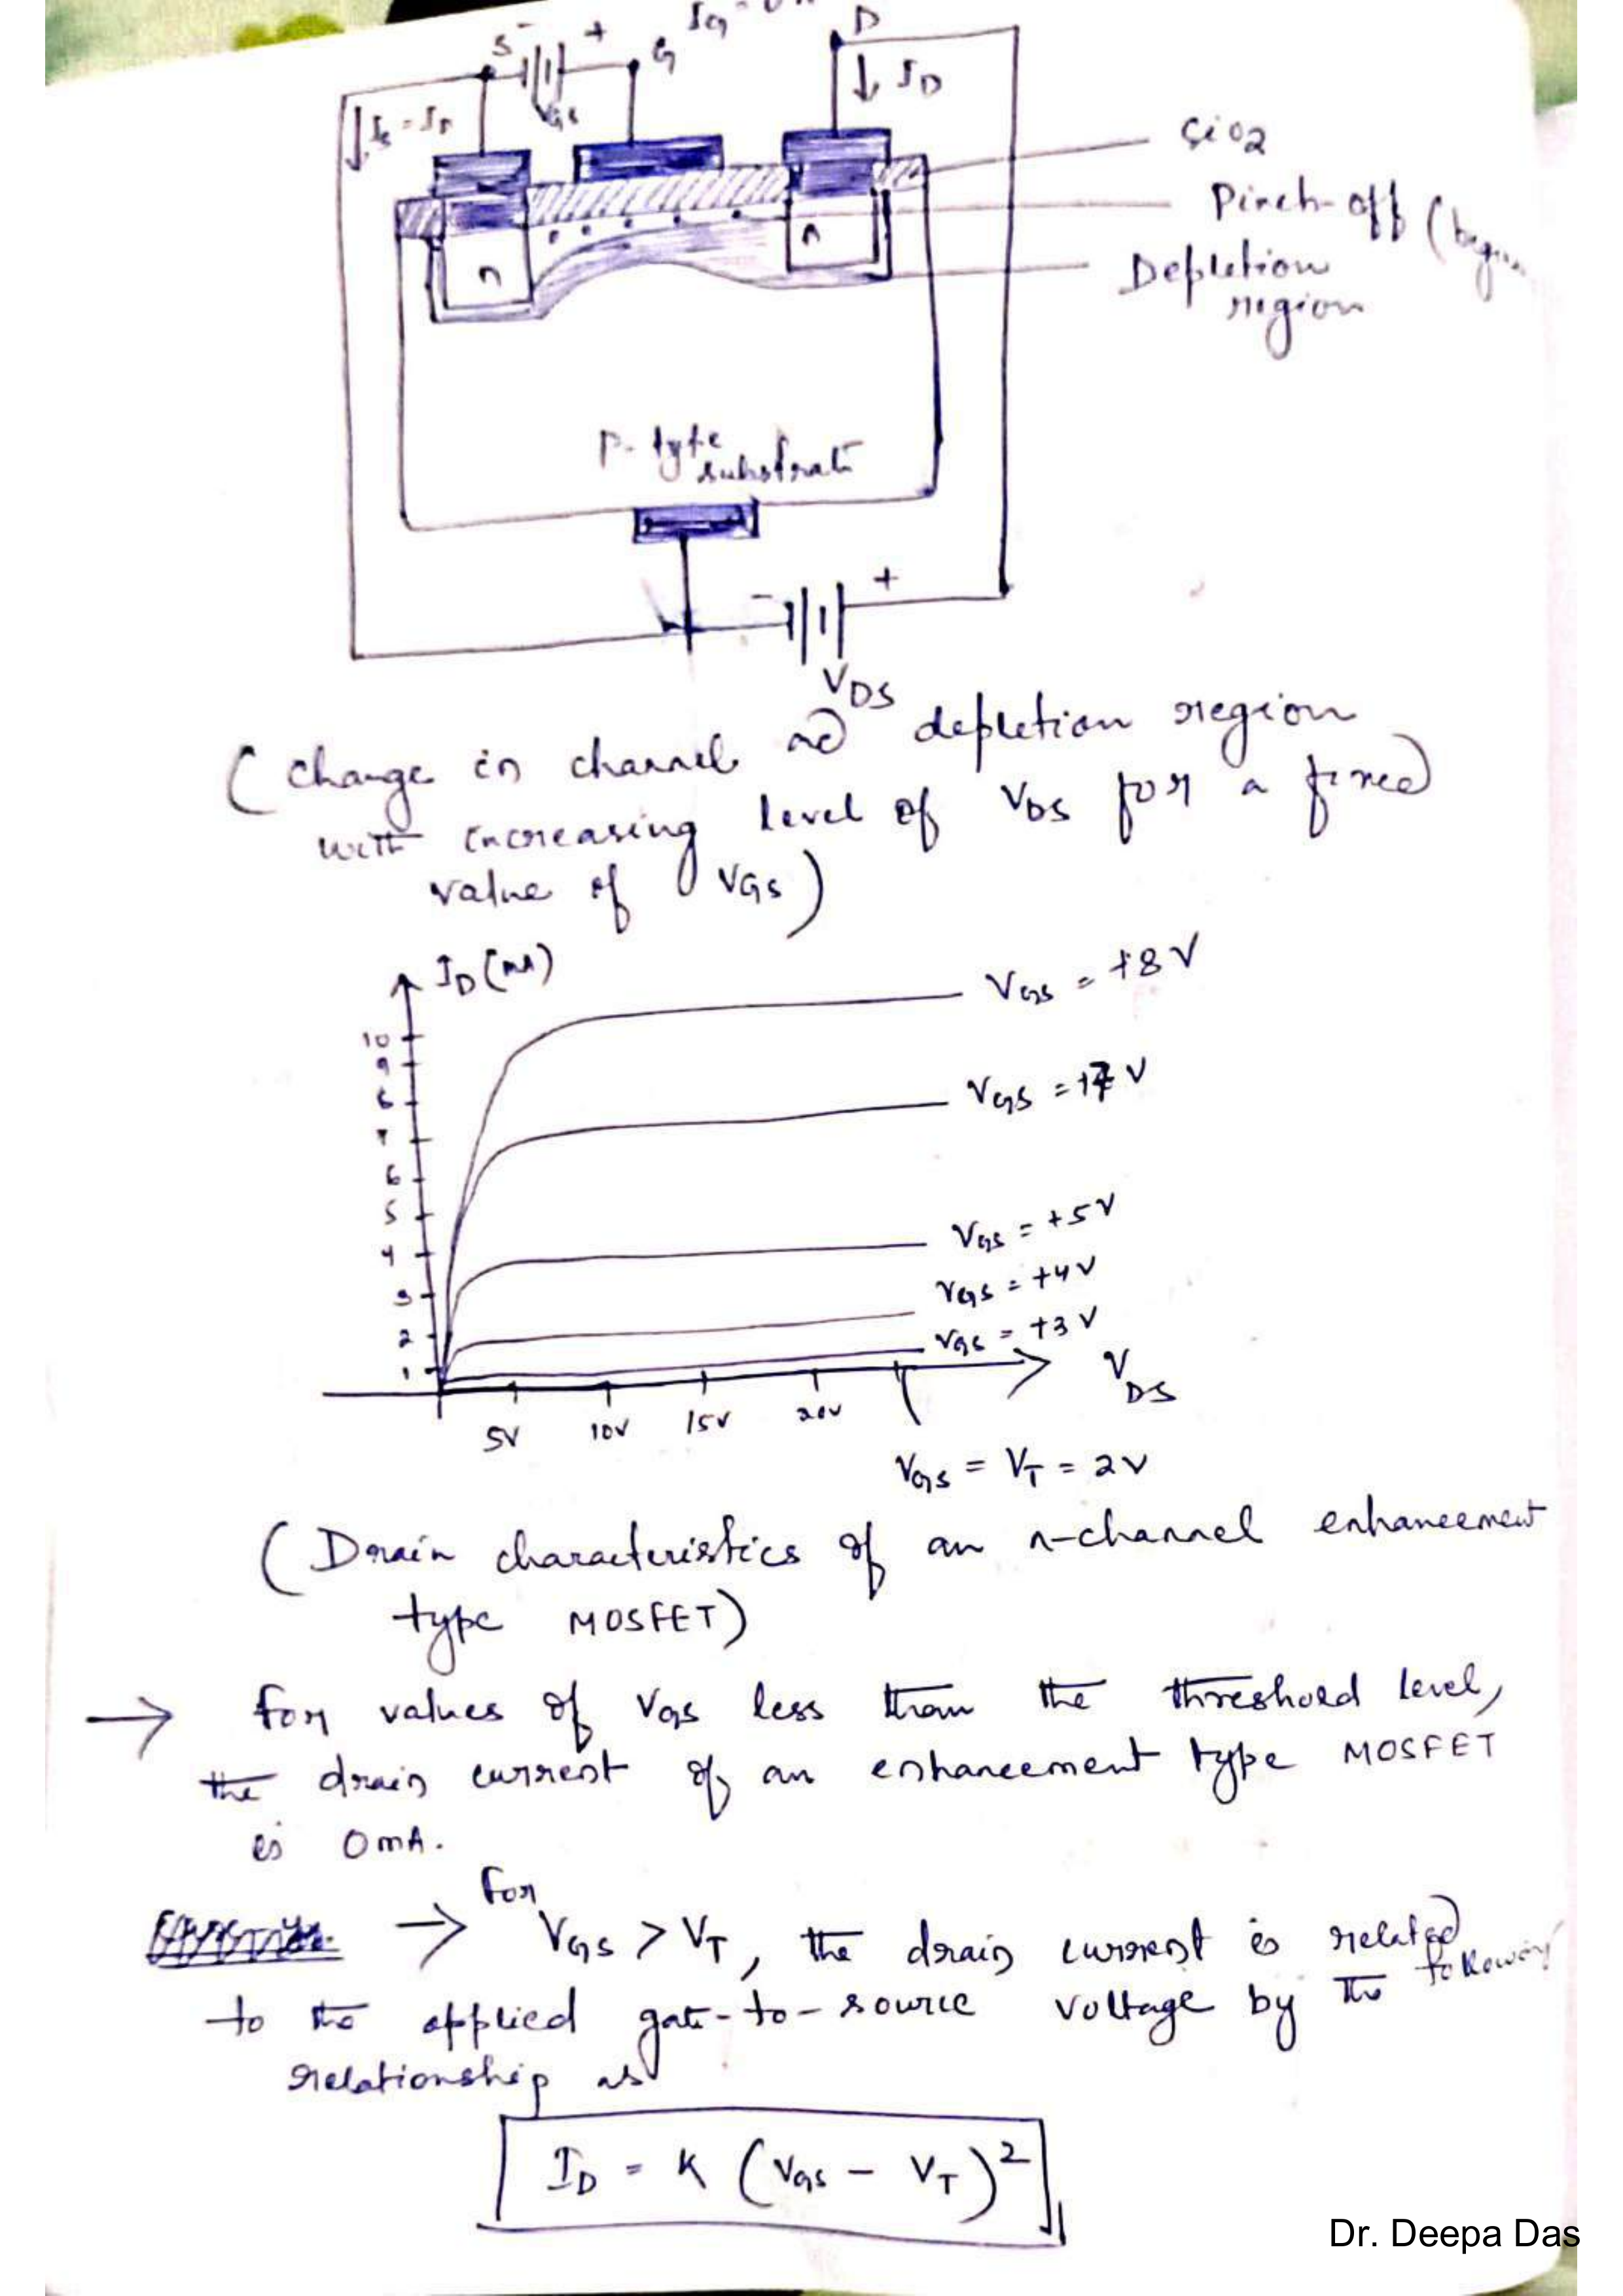 S - + G
D
↓ ID
VGS
SiO2
Pinch-off (
n
n
Depletion
region
P-type
substrate
- +
VDS
(Change in channel and depletion region
with increasing level of VDS for a fixed
value of VGS)
ID (mA)
VGS = +8V
10
9
8
VGS = +7V
7
6
5
VGS = +5V
4
VGS = +4V
3
2
VGS = +3V
1
VDS
5V 10V 15V 20V
VGS = VT = 2V
(Drain characteristics of an n-channel enhancement
type MOSFET)
→ for values of VGS less than the threshold level,
the drain current of an enhancement type MOSFET
is 0mA.
→ for VGS > VT, the drain current is related
to the applied gate-to-source voltage by the following
relationship as
ID = K (VGS - VT)²
Dr. Deepa Das